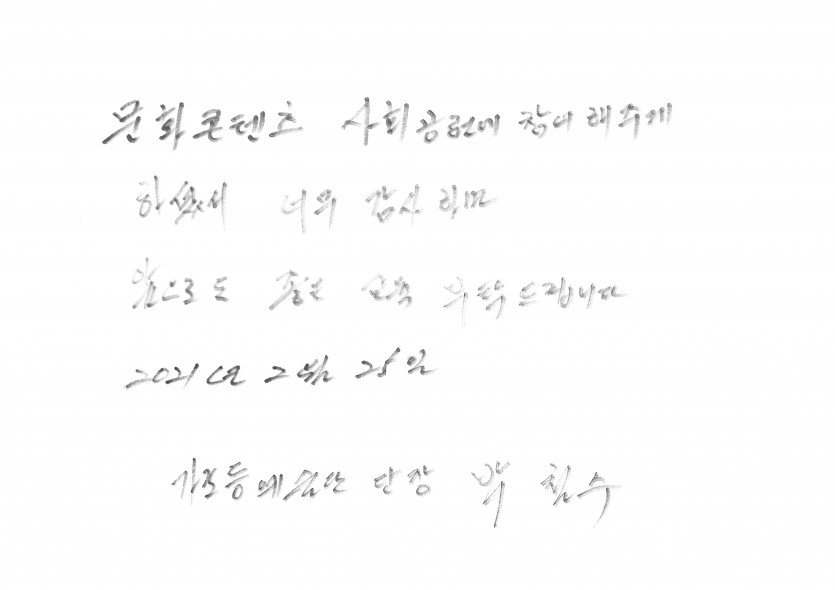 문화콘텐츠 사회공헌에 참여 해주게
하셨서 너무 감사하며
앞으로도 좋은 교육 부탁드립니다
2021년 2월 25일
단장 박철수